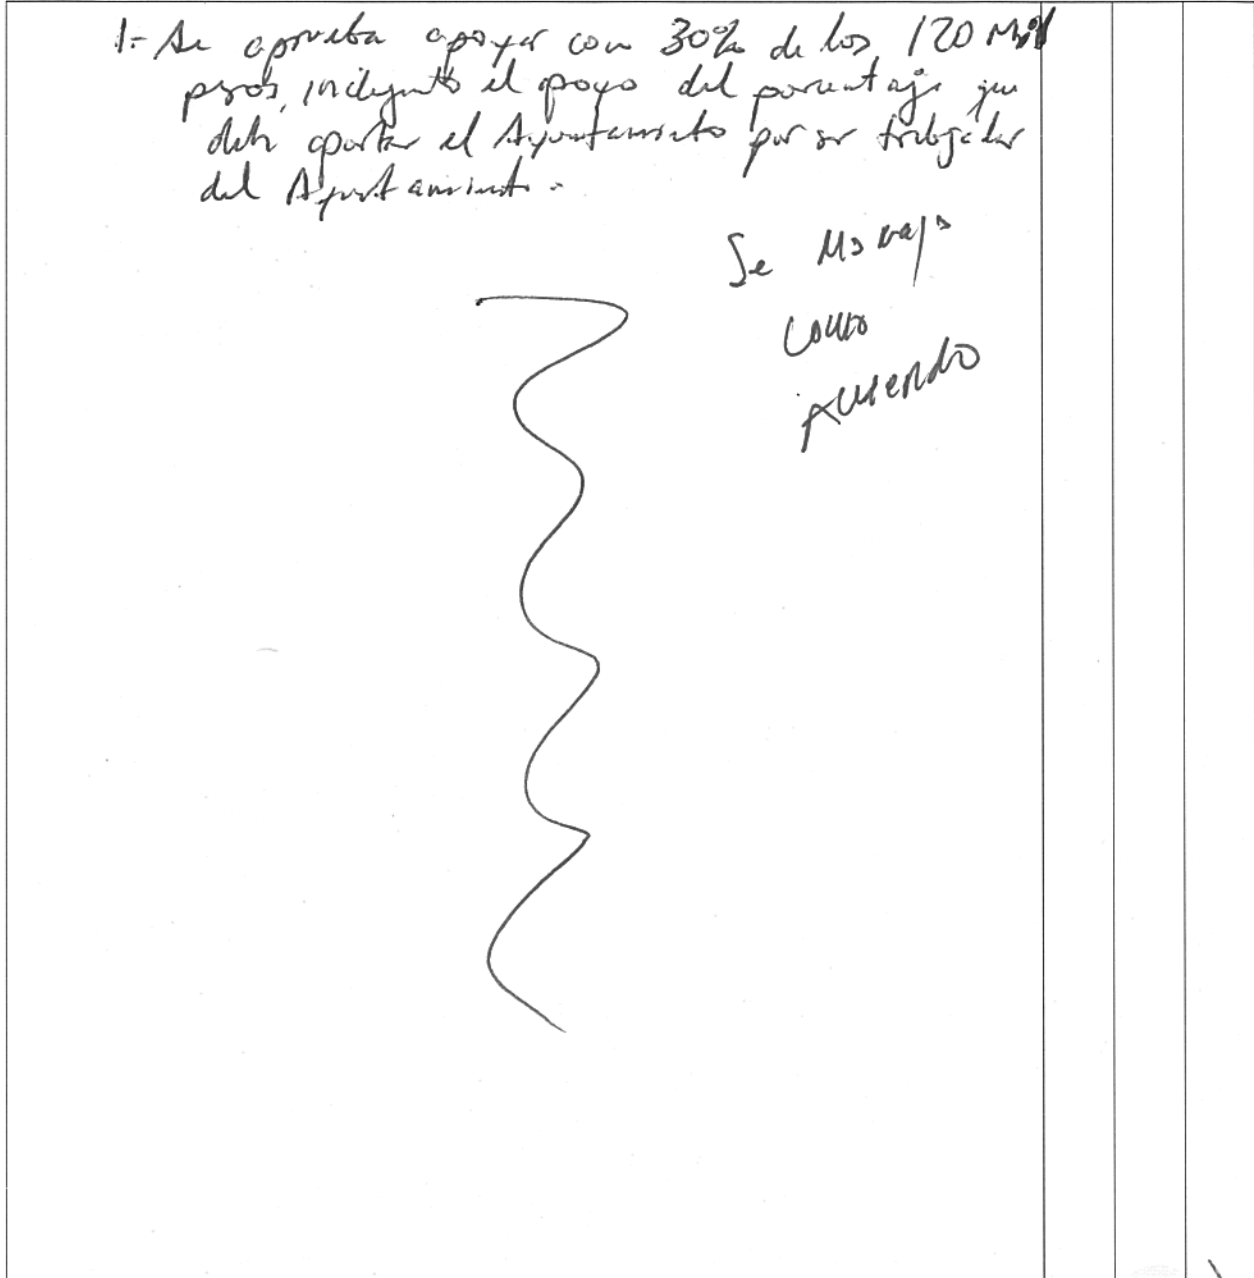 1.- Se aprueba apoyar con 30% de los 120 Mil
pesos, incluyendo el apoyo del porcentaje que
debe aportar el Ayuntamiento por ser trabajador
del Ayuntamiento.-
Se Maneja
como
Acuerdo